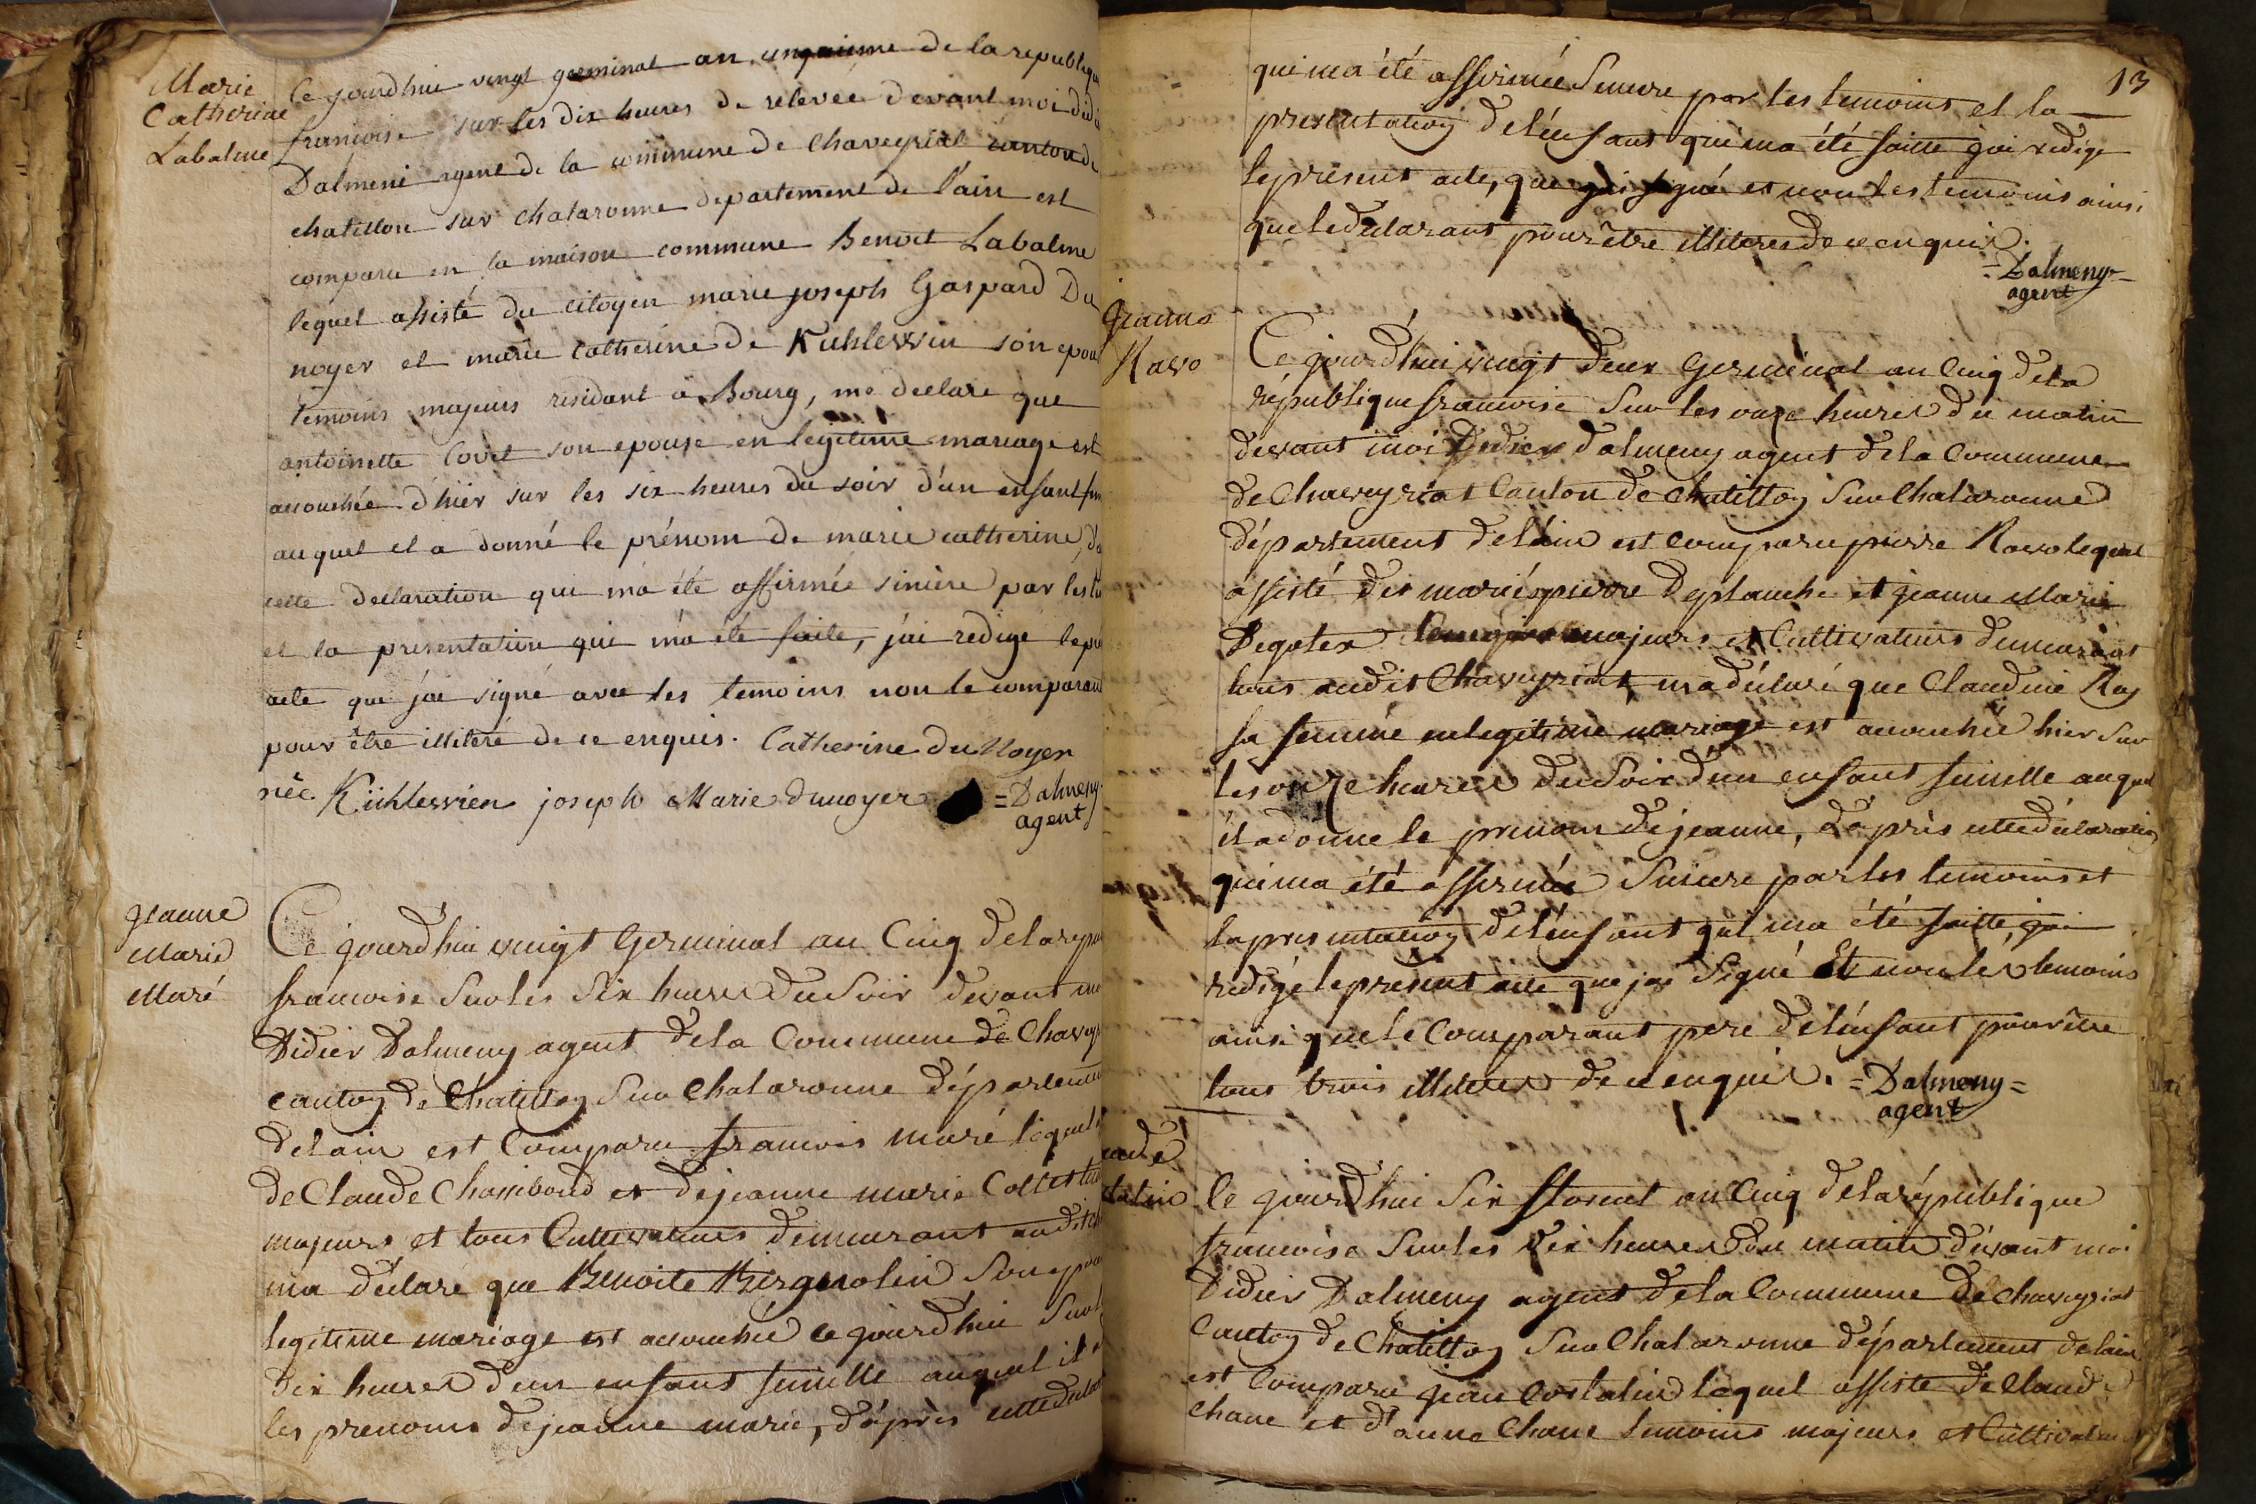 Marie
Catherine
Labalme
Ce jourdhui vingt germinal an cinquieme de la republique
francoise sur les dix heures de relevée devant moi didi
Dalmeni agent de la commune de Chaveyriat canton de
chatillon sur chalaronne departement de l'ain est
comparu en la maison commune Benoit Labalme
lequel assisté du citoyen marie joseph Gaspard Du
noyer et marie catherine de Kuhlewin son epou
temoins majeurs résidant a Bourg, me declare que
antoinette Covet son epouse en legitime mariage est
accouchée d'hier sur les six heures du soir d'un enfant fem
auquel il a donné le prénom de marie catherine, d'a
cette declaration qui m'a été affirmée sincère par les te
et la presentation qui m'a été faite, j'ai redigé le pre
acte que j'ai signé avec les temoins non le comparant
pour être illiteré de ce enquis. Catherine du Noyer
née Kühlewien joseph Marie dunoyer =Dalmeny
agent
jeanne
Marie
Maré
Ce jourd'hui vingt Germinal an Cinq de la repu
francoise Sur les Six heures du Soir devant m
Didier Dalmeny agent de la Commune de Chavey
canton de Chatillon Sur Chalaronne départeme
de lain est Comparu francois maré lequel
de Claude Chassiboud et de jeanne marie Collet te
majeurs et tous Cultivateurs demeurant audit ch
ma déclaré que Benoite Bergerolin Son epou
legitime mariage est accouchée ce jourd'hui Sur l
dix heures d'un enfant femelle auquel il a
les prenoms de jeanne marie, d'après cette declar
13
qui ma été affirmée Sincere par les temoins et la
presentation de l'enfant qui ma été faitte jai redigé
le présent acte, que jai signé et non les temoins ainsi
que le déclarant pour être illiteres de ce enquis.
=Dalmeny=
agent
jeanne
Ravo
Ce jourd'hui vingt deux Germinal an Cinq de la
république francoise Sur les onze heures du matin
devant moi Didier Dalmeny agent de la Commune
de Chaveyriat Canton de Chatillon Sur Chalaronne
département de l'ain est Comparu pierre Ravo lequel
assisté des mariés pierre Deplanche et jeanne Marie
Degoler temoins majeurs et Cultivateurs demeurant
tous audit Chaveyriat, ma déclaré que Claudine Ray
sa femme en legitime mariage est accouchée hier Sur
les onze heures du Soir d'un enfant femelle auquel
il a donné le prenom de jeanne, d'après cette déclaration
qui ma été affirmée Sincere par les temoins et
la presentation de l'enfant qui ma été faitte jai
redigé le présent acte que jai Signé Et non les temoins
ainsi que le Comparant pere de l'enfant pour être
tous trois illiteres de ce enquis. =Dalmeny=
agent
aude
talin
Ce jourd'hui Six floreal an Cinq de la république
francoise Sur les dix heures du matin devant moi
Didier Dalmeny agent de la Commune de Chaveyriat
Canton de Chatillon Sur Chalaronne département de lain
est Comparu jean Costalin lequel assisté de Claude
Chane et d'anne Chane temoins majeurs et Cultivateurs